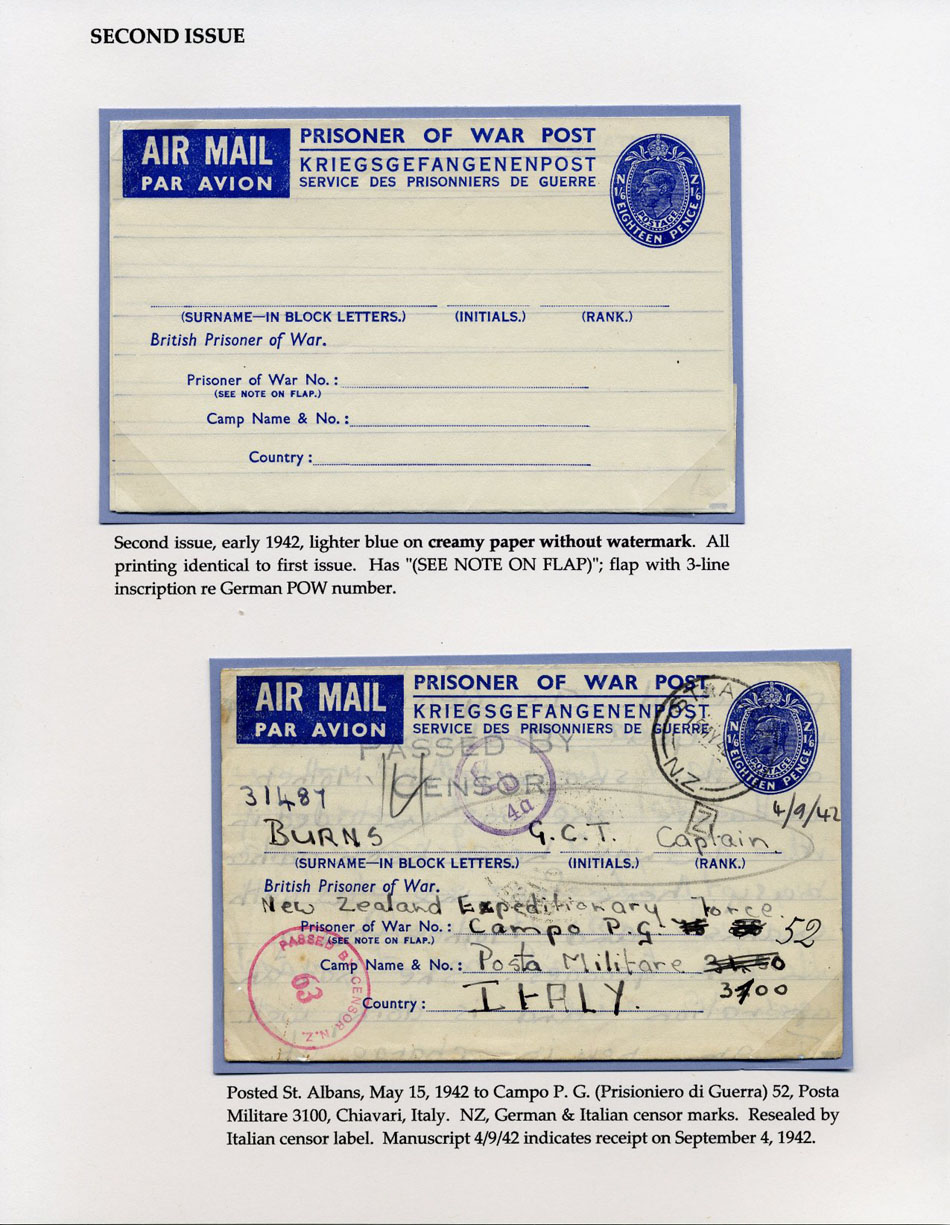 SECOND ISSUE
AIR MAIL
PAR AVION
PRISONER OF WAR POST
KRIEGSGEFANGENENPOST
SERVICE DES PRISONNIERS DE GUERRE
N Z
1/6 1/6
POSTAGE
EIGHTEEN PENCE
(SURNAME—IN BLOCK LETTERS.) (INITIALS.) (RANK.)
British Prisoner of War.
Prisoner of War No. :
(SEE NOTE ON FLAP.)
Camp Name & No. :
Country :
Second issue, early 1942, lighter blue on creamy paper without watermark. All
printing identical to first issue. Has "(SEE NOTE ON FLAP)"; flap with 3-line
inscription re German POW number.
AIR MAIL
PAR AVION
PRISONER OF WAR POST
KRIEGSGEFANGENENPOST
SERVICE DES PRISONNIERS DE GUERRE
N Z
1/6 1/6
POSTAGE
EIGHTEEN PENCE
N.Z.
PASSED BY
CENSOR
4a
31487
4/9/42
Z
BURNS G.C.T. Captain
(SURNAME—IN BLOCK LETTERS.) (INITIALS.) (RANK.)
British Prisoner of War.
New Zealand Expeditionary Force.
Prisoner of War No. : Campo P.G. 52
(SEE NOTE ON FLAP.)
Camp Name & No. : Posta Militare
3100
Country : ITALY.
PASSED BY CENSOR N.Z.
63
Posted St. Albans, May 15, 1942 to Campo P. G. (Prisioniero di Guerra) 52, Posta
Militare 3100, Chiavari, Italy. NZ, German & Italian censor marks. Resealed by
Italian censor label. Manuscript 4/9/42 indicates receipt on September 4, 1942.